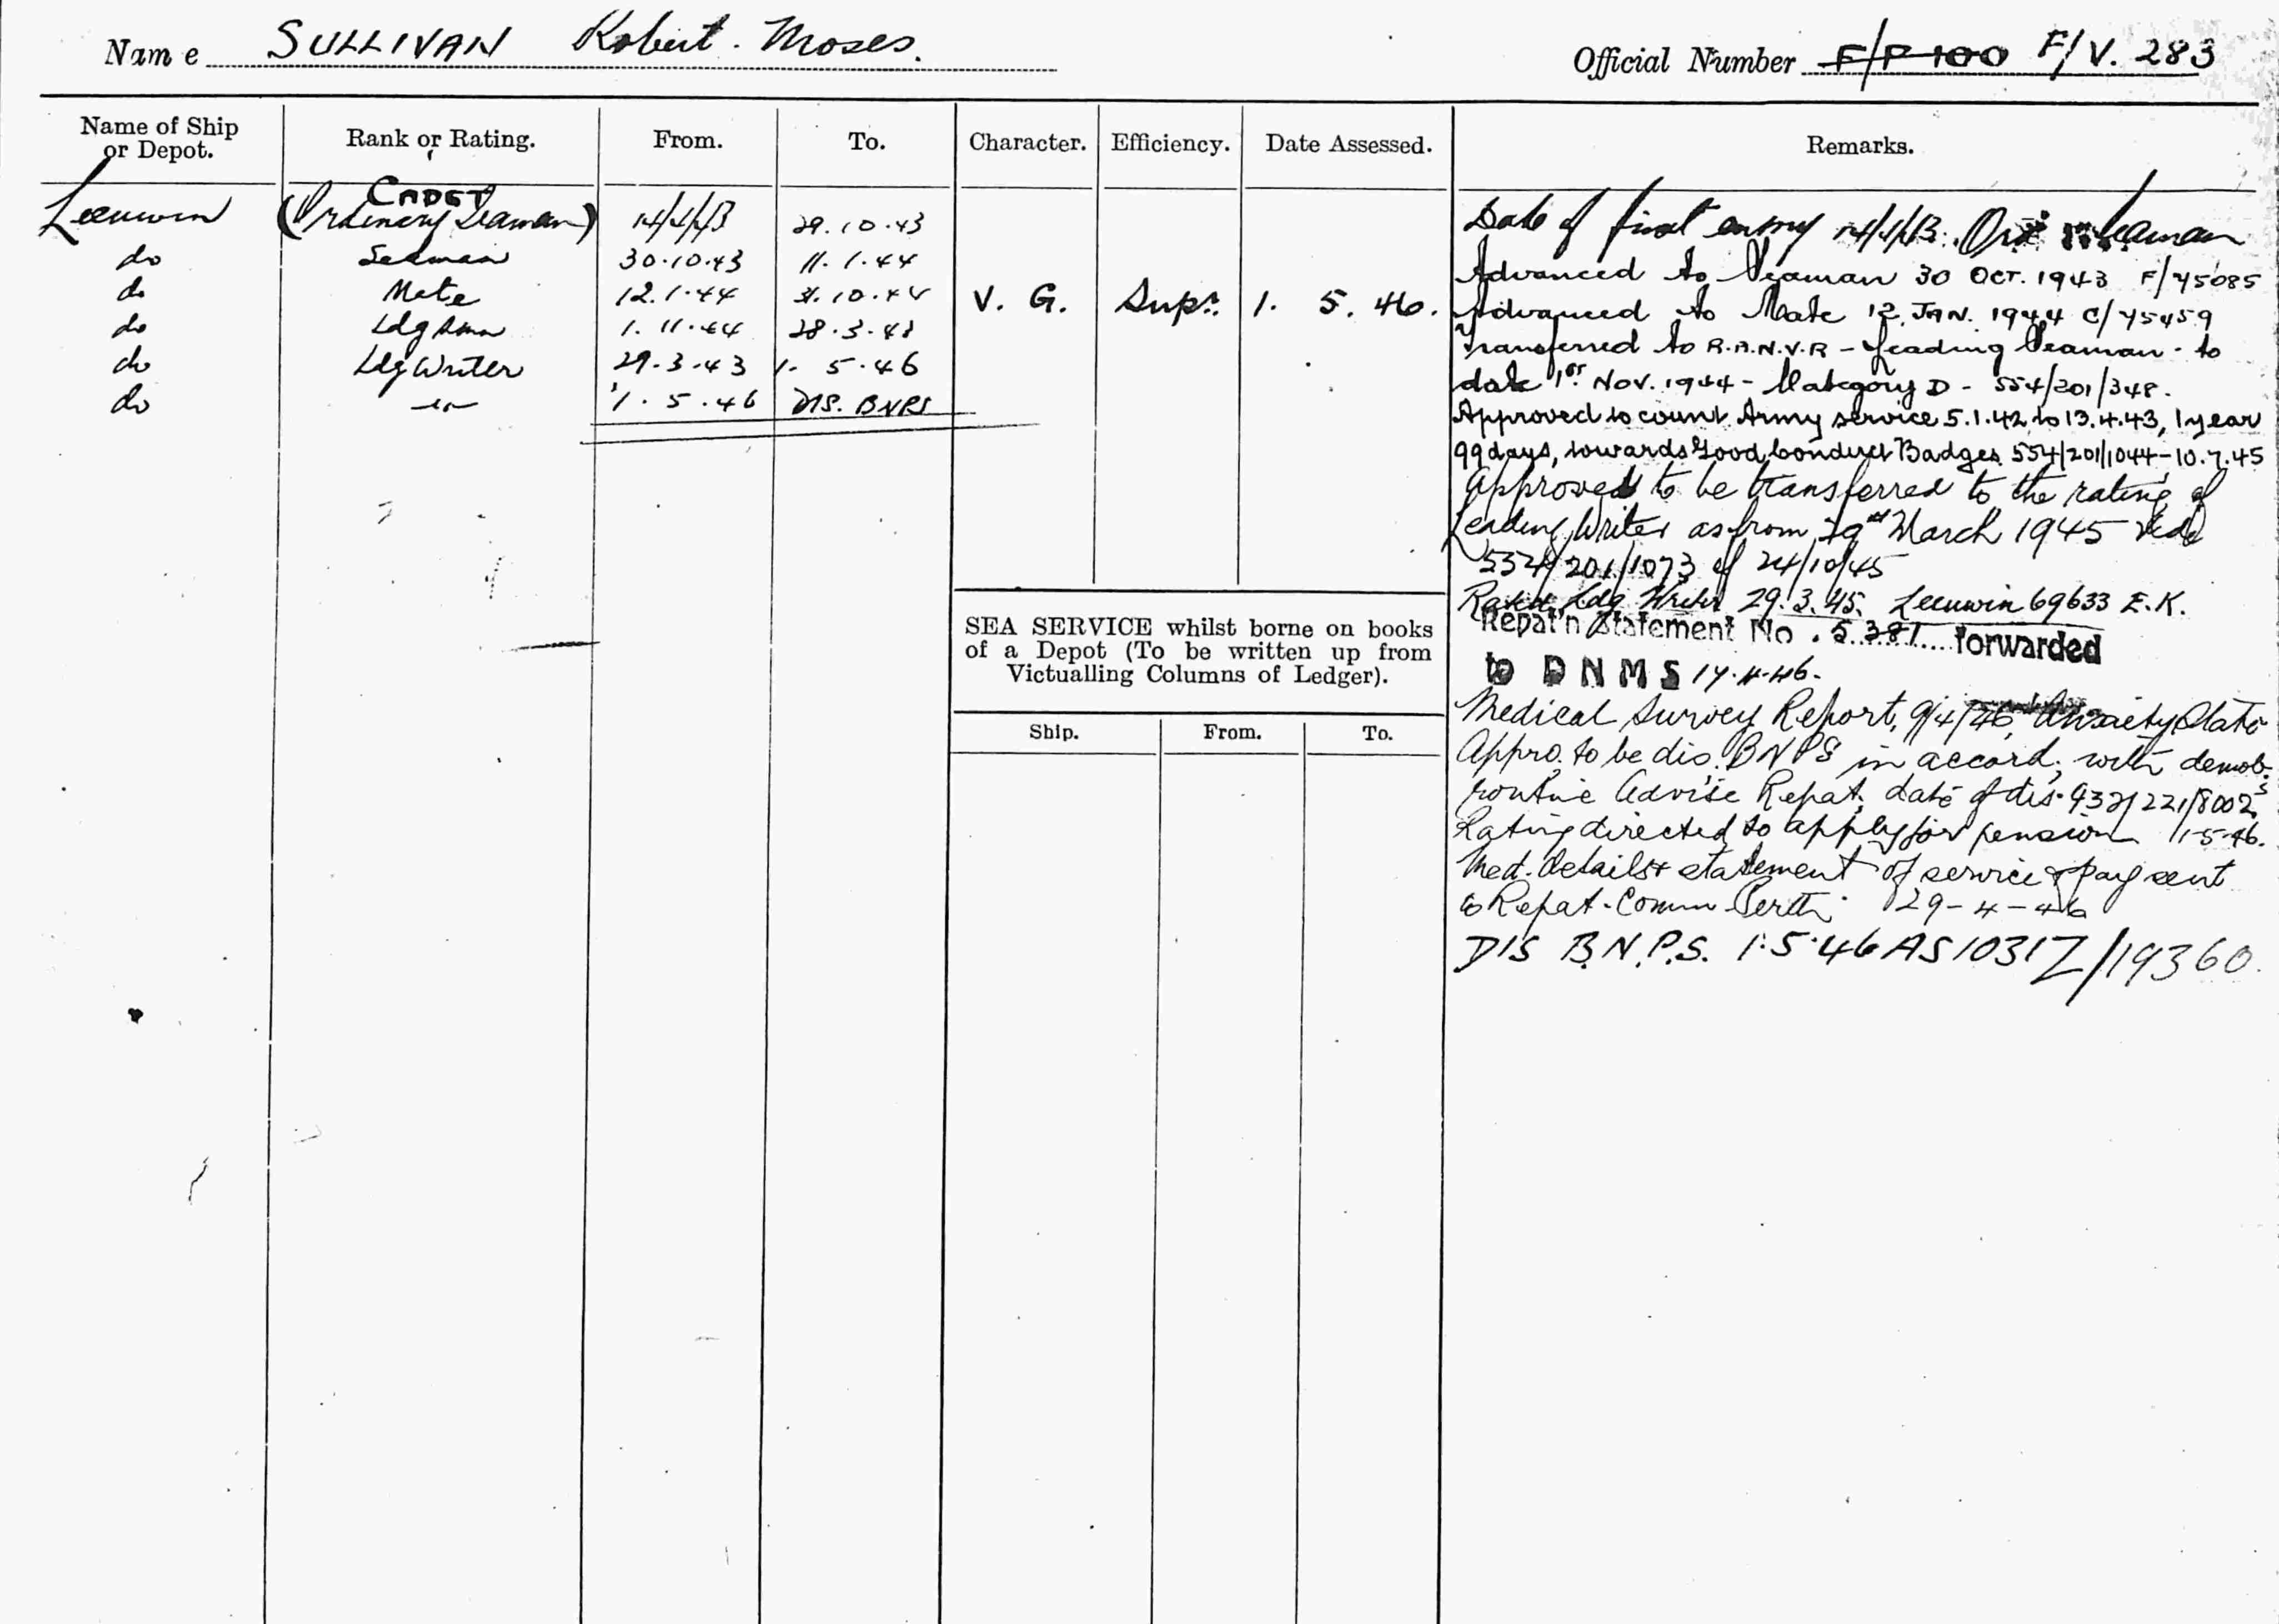 Name SULLIVAN Robert. Moses.
Official Number F/P 100 F/V. 283
Name of Ship or Depot. Rank or Rating. From. To. Character. Efficiency. Date Assessed. Remarks.
CADET
Leeuwin (Ordinary Seaman) 29.10.43
do Seaman 30.10.43 11.1.44
do Mate 12.1.44 31.10.44
do Ldg Smn 1.11.44 28.3.43
do Ldg Writer 29.3.43 1.5.46
do 1.5.46 DIS. BNPS
V. G. Supr. 1. 5. 46.
Date of first entry Seaman
Advanced to Seaman 30 OCT. 1943 F/45085
Advanced to Mate 12. JAN. 1944 C/45459
Transferred to R.A.N.V.R - Leading Seaman - to
date 1st. Nov. 1944 - Category D - 554/201/348.
Approved to count Army service 5.1.42 to 13.4.43, 1 year
99 days, towards Good Conduct Badges 554/201/1044 - 10.7.45
Approved to be transferred to the rating of
Leading Writer as from 29th March 1945 vide
554/201/1073 of 24/10/45
Rated Ldg Writer 29.3.45. Leeuwin 69633 E.K.
Repat'n Statement No. 5381 forwarded
to DNMS 17.4.46.
Medical Survey Report, 9/4/46, Anxiety State
Appro. to be dis. BNPS in accord. with demob.
routine Advise Repat. date of dis. 432/221/8002
Rating directed to apply for pension 1-5-46.
Med. details & statement of service & pay sent
to Repat. Comm Perth. 29-4-46
DIS B.N.P.S. 1.5.46 AS 1031Z/19360.
SEA SERVICE whilst borne on books
of a Depot (To be written up from
Victualling Columns of Ledger).
Ship. From. To.